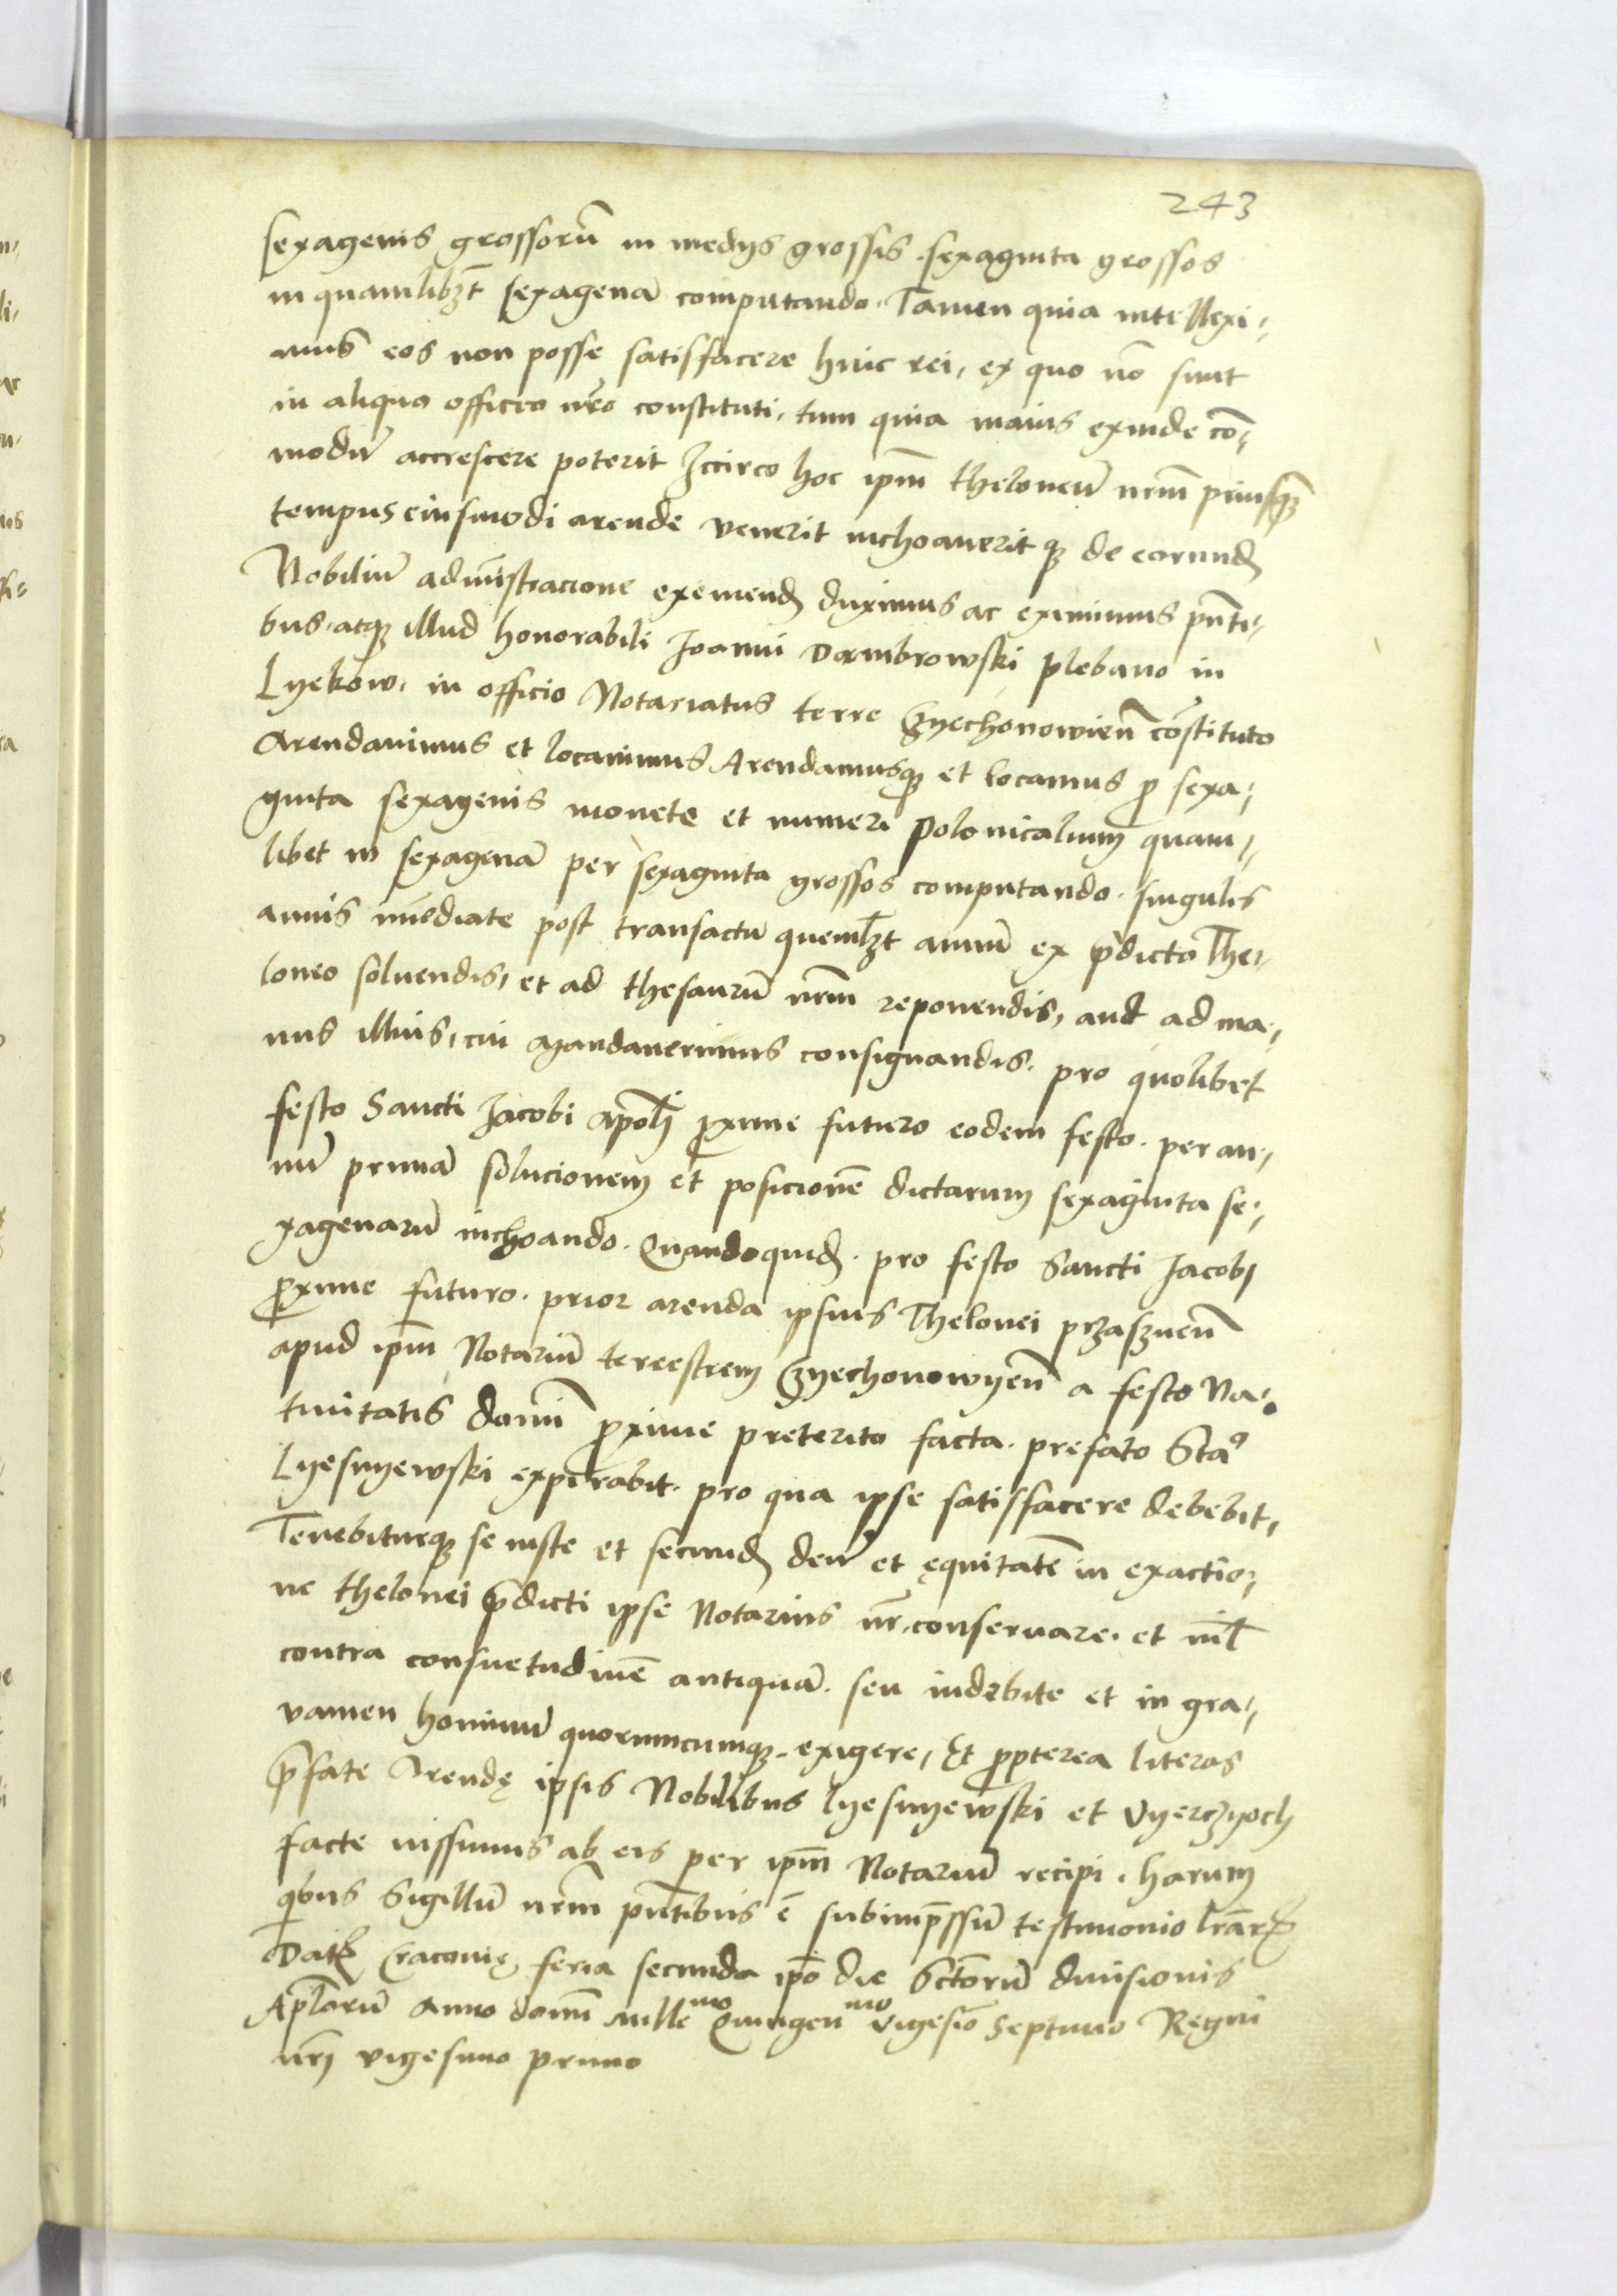 243
sexagenis grossorū in medijs grossis. sexaginta grossos
in quamlibꝫt sexagenā computando. Tamen quia intellexi,,
mus eos non posse satisfacere huic rei, ex quo nō sunt
in aliquo officio nr̄o constituti, tum quia maius exinde cō,,
modū accrescere poterit Iccirco hoc ip̄m theloneū nr̄m priusq̄ꝫ
tempus eiusmodi arende venerit inchoaueritqꝫ de eorundꝫ
Nobiliū admīstracione eximendꝫ duximus ac eximimus pn̄ti,,
bus, atqꝫ illud honorabili Joanni Dambrowski plebano in
Lyekow, in officio Notariatus terre Czyechonowien̄ cōstituto
Arendauimus et locauimus Arendamusqꝫ et locamus ꝑ sexa,,
ginta sexagenis monete et numeri polonicalium quam,,
libet in sexagenā per sexaginta grossos computando. singulis
annis īmediate post transactū quemlꝫt annū ex p̄dicto The,,
loneo soluendis, et ad thesaurū nr̄m reponendis, aut ad ma,,
nus illius, cui mandauerimus consignandis. pro quolibet
festo Sancti Jacobi Apl̄i ꝓxime futuro eodem festo. per an,,
nū primā solucionem et posicionē dictarum sexaginta se,,
xagenarū inchoando. Quandoquidꝫ. pro festo Sancti Jacobi
ꝓxime futuro. prior arenda ipsius Thelonei przasznen̄
apud ip̄m Notariū terrestrem Czyechonowyen̄ a festo Na,,
tiuitatis domī ꝓxime preterito facta. prefato Stā
Lyesnyewski expirabit. pro qua ipse satisfacere debebit,
Tenebiturqꝫ se iuste et secundꝫ deū et ęquitatē in exactio,,
ne thelonei p̄dicti ipse Notarius nr̄. conseruare. et nil̄
contra consuetudinē antiquā. seu indebite et in gra,,
vamen hominū quorumcumqꝫ. exigere, Et ꝓpterea literas
p̄fate Arendę ipsis Nobilibus Lyesnyewski et Vyerzyoch
facte iussimus ab eis per ip̄m Notariū recipi. harum
qbus Sigillū nr̄m pn̄tibus ē subimp̄ssū testimonio lr̄arꝝ
Datꝫ Cracouię feria secunda ip̄o die Sctorū diuisionis
Ap̄lorū Anno domī mille mo Quingen mo vigesio septimo Regni
nr̄i vigesimo primo